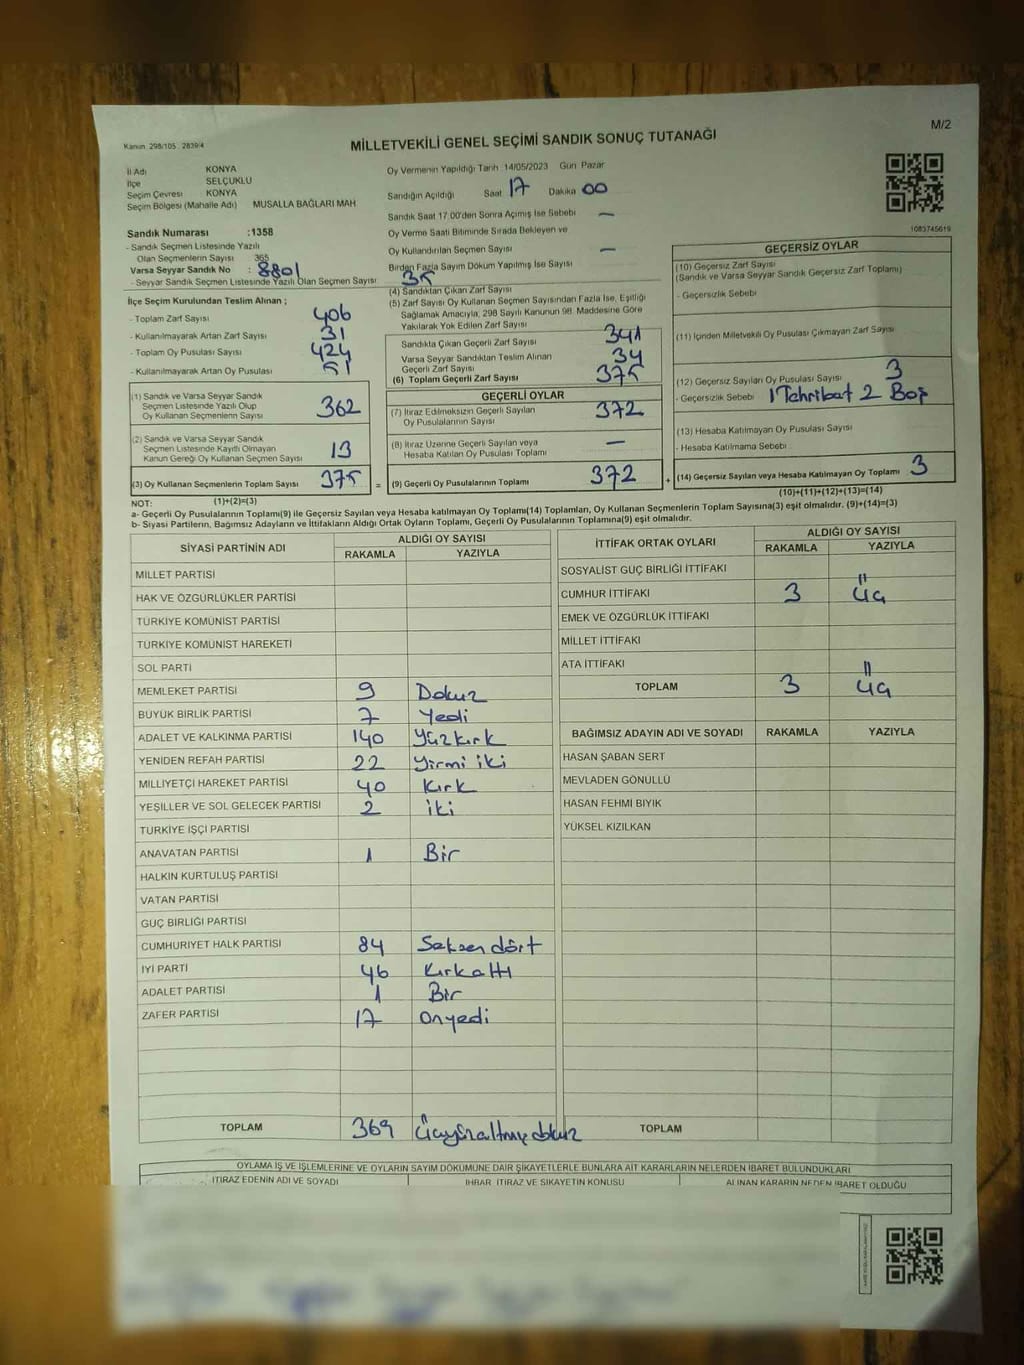 M/2
Kanun 298/105 2839/4
MİLLETVEKİLİ GENEL SEÇİMİ SANDIK SONUÇ TUTANAĞI
İl Adı KONYA
İlçe SELÇUKLU
Seçim Çevresi KONYA
Seçim Bölgesi (Mahalle Adı) MUSALLA BAĞLARI MAH
Sandık Numarası :1358
- Sandık Seçmen Listesinde Yazılı
Olan Seçmenlerin Sayısı 365
Varsa Seyyar Sandık No : 8801
- Seyyar Sandık Seçmen Listesinde Yazılı Olan Seçmen Sayısı 35
Oy Vermenin Yapıldığı Tarih 14/05/2023 Gün Pazar
Sandığın Açıldığı Saat 17 Dakika 00
Sandık Saat 17.00'den Sonra Açımış İse Sebebi —
Oy Verme Saati Bitiminde Sırada Bekleyen ve
Oy Kullandırılan Seçmen Sayısı —
Birden Fazla Sayım Döküm Yapılmış İse Sayısı
1083745619
İlçe Seçim Kurulundan Teslim Alınan ;
- Toplam Zarf Sayısı 406
- Kullanılmayarak Artan Zarf Sayısı 31
- Toplam Oy Pusulası Sayısı 424
- Kullanılmayarak Artan Oy Pusulası 51
(1) Sandık ve Varsa Seyyar Sandık
Seçmen Listesinde Yazılı Olup
Oy Kullanan Seçmenlerin Sayısı 362
(2) Sandık ve Varsa Seyyar Sandık
Seçmen Listesinde Kayıtlı Olmayan
Kanun Gereği Oy Kullanan Seçmen Sayısı 13
(3) Oy Kullanan Seçmenlerin Toplam Sayısı 375 =
(1)+(2)=(3)
(4) Sandıktan Çıkan Zarf Sayısı
(5) Zarf Sayısı Oy Kullanan Seçmen Sayısından Fazla İse, Eşitliği
Sağlamak Amacıyla, 298 Sayılı Kanunun 98. Maddesine Göre
Yakılarak Yok Edilen Zarf Sayısı
Sandıkta Çıkan Geçerli Zarf Sayısı 341
Varsa Seyyar Sandıktan Teslim Alınan
Geçerli Zarf Sayısı 34
(6) Toplam Geçerli Zarf Sayısı 375
GEÇERLİ OYLAR
(7) İtiraz Edilmeksizin Geçerli Sayılan
Oy Pusulalarının Sayısı 372
(8) İtiraz Üzerine Geçerli Sayılan veya
Hesaba Katılan Oy Pusulası Toplamı —
(9) Geçerli Oy Pusulalarının Toplamı 372 +
GEÇERSİZ OYLAR
(10) Geçersiz Zarf Sayısı
(Sandık ve Varsa Seyyar Sandık Geçersiz Zarf Toplamı)
- Geçersizlik Sebebi
(11) İçinden Milletvekili Oy Pusulası Çıkmayan Zarf Sayısı
(12) Geçersiz Sayılan Oy Pusulası Sayısı 3
- Geçersizlik Sebebi 1 Tahribat 2 Boş
(13) Hesaba Katılmayan Oy Pusulası Sayısı
- Hesaba Katılmama Sebebi
(14) Geçersiz Sayılan veya Hesaba Katılmayan Oy Toplamı 3
(10)+(11)+(12)+(13)=(14)
NOT:
a- Geçerli Oy Pusulalarının Toplamı(9) ile Geçersiz Sayılan veya Hesaba katılmayan Oy Toplamı(14) Toplamları, Oy Kullanan Seçmenlerin Toplam Sayısına(3) eşit olmalıdır. (9)+(14)=(3)
b- Siyasi Partilerin, Bağımsız Adayların ve İttifakların Aldığı Ortak Oyların Toplamı, Geçerli Oy Pusulalarının Toplamına(9) eşit olmalıdır.
SİYASİ PARTİNİN ADI ALDIĞI OY SAYISI
RAKAMLA YAZIYLA
MİLLET PARTİSİ
HAK VE ÖZGÜRLÜKLER PARTİSİ
TÜRKİYE KOMÜNİST PARTİSİ
TÜRKİYE KOMÜNİST HAREKETİ
SOL PARTİ
MEMLEKET PARTİSİ 9 Dokuz
BÜYÜK BİRLİK PARTİSİ 7 Yedi
ADALET VE KALKINMA PARTİSİ 140 Yüzkırk
YENİDEN REFAH PARTİSİ 22 Yirmi iki
MİLLİYETÇİ HAREKET PARTİSİ 40 Kırk
YEŞİLLER VE SOL GELECEK PARTİSİ 2 iki
TÜRKİYE İŞÇİ PARTİSİ
ANAVATAN PARTİSİ 1 Bir
HALKIN KURTULUŞ PARTİSİ
VATAN PARTİSİ
GÜÇ BİRLİĞİ PARTİSİ
CUMHURİYET HALK PARTİSİ 84 Seksen dört
İYİ PARTİ 46 Kırkaltı
ADALET PARTİSİ 1 Bir
ZAFER PARTİSİ 17 Onyedi
TOPLAM 369 Üçyüzaltmışdokuz
İTTİFAK ORTAK OYLARI ALDIĞI OY SAYISI
RAKAMLA YAZIYLA
SOSYALİST GÜÇ BİRLİĞİ İTTİFAKI
CUMHUR İTTİFAKI 3 Üç
EMEK VE ÖZGÜRLÜK İTTİFAKI
MİLLET İTTİFAKI
ATA İTTİFAKI
TOPLAM 3 Üç
BAĞIMSIZ ADAYIN ADI VE SOYADI RAKAMLA YAZIYLA
HASAN ŞABAN SERT
MEVLADEN GÖNÜLLÜ
HASAN FEHMİ BIYIK
YÜKSEL KIZILKAN
TOPLAM
OYLAMA İŞ VE İŞLEMLERİNE VE OYLARIN SAYIM DÖKÜMÜNE DAİR ŞİKAYETLERLE BUNLARA AİT KARARLARIN NELERDEN İBARET BULUNDUKLARI
İTİRAZ EDENİN ADI VE SOYADI İHBAR, İTİRAZ VE ŞİKAYETİN KONUSU ALINAN KARARIN NEDEN İBARET OLDUĞU